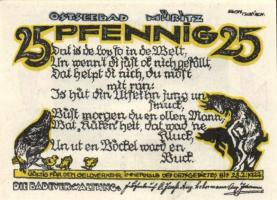 OSTSEEBAD MÜRITZ
25 PFENNIG 25
Dat is de Loop so in de Welt,
Un wenn't di just ok nich gefüllt,
Dat helpt di nich, du möst
mit run:
Is hüt din Öller jung un
smuck,
Büst morgen du en ollen Mann,
Wat, Küken heit, dat ward ne
Kluck,
Un ut en Böckel ward en
Buck.
GÜLTIG FÜR DEN GELDVERKEHR INNERHALB DES ORTSGEBIETES BIS
DIE BADEVERWALTUNG: